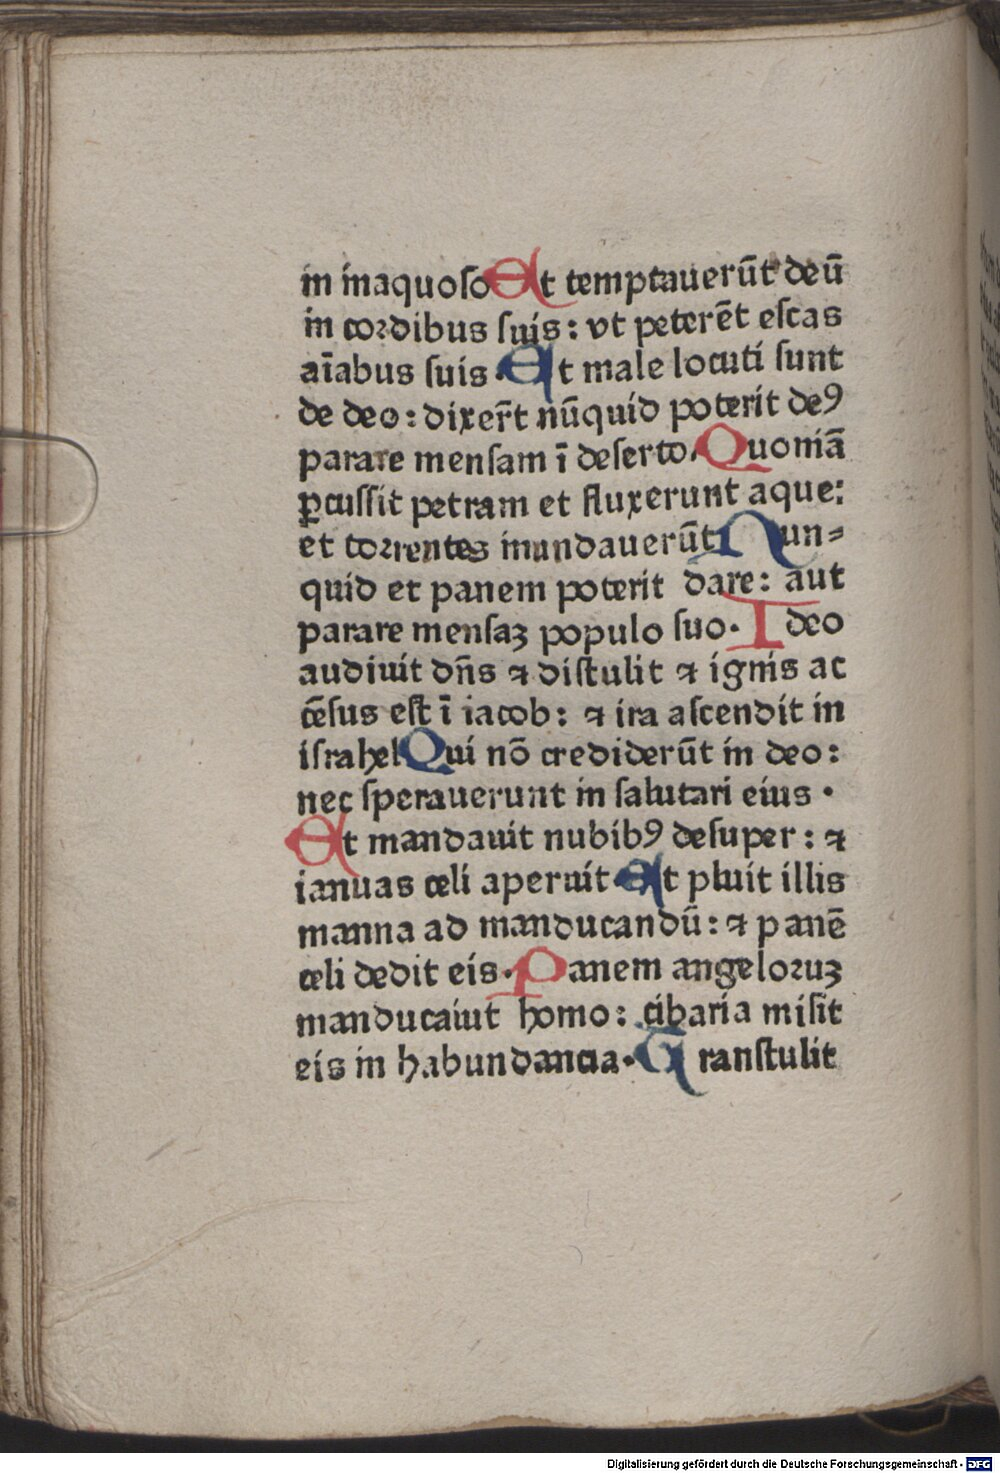 in inaquoso Et temptauerūt deū
in cordibus suis: vt peterēt escas
aīabus suis. Et male locuti sunt
de deo: dixer̄t nūquid poterit deꝰ
parare mensam ī deserto. Quoniā
ꝑcussit petram et fluxerunt aque:
et torrentes inundauerūt. Nun-
quid et panem poterit dare: aut
parare mensaꝫ populo suo. Ideo
audiuit dn̄s ⁊ distulit ⁊ ignis ac
cēsus est ī iacob: ⁊ ira ascendit in
israhel Qui nō crediderūt in deo:
nec sperauerunt in salutari eius .
Et mandauit nubibꝰ desuper: ⁊
ianuas celi aperuit. Et pluit illis
manna ad manducandū: ⁊ panē
celi dedit eis. Panem angeloruꝫ
manducauit homo: cibaria misit
eis in habundancia. Transtulit
Digitalisierung gefördert durch die Deutsche Forschungsgemeinschaft - DFG